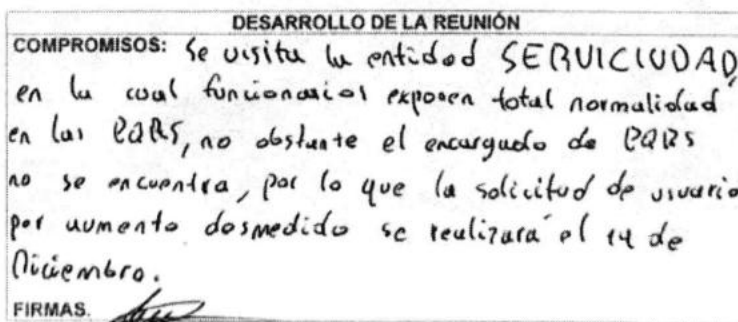 DESARROLLO DE LA REUNIÓN
COMPROMISOS: Se visita la entidad SERVICIUDAD,
en la cual funcionarios exponen total normalidad
en las PQRS, no obstante el encargado de PQRS
no se encuentra, por lo que la solicitud de usuario
por aumento desmedido se realizará el 14 de
Diciembre.
FIRMAS.